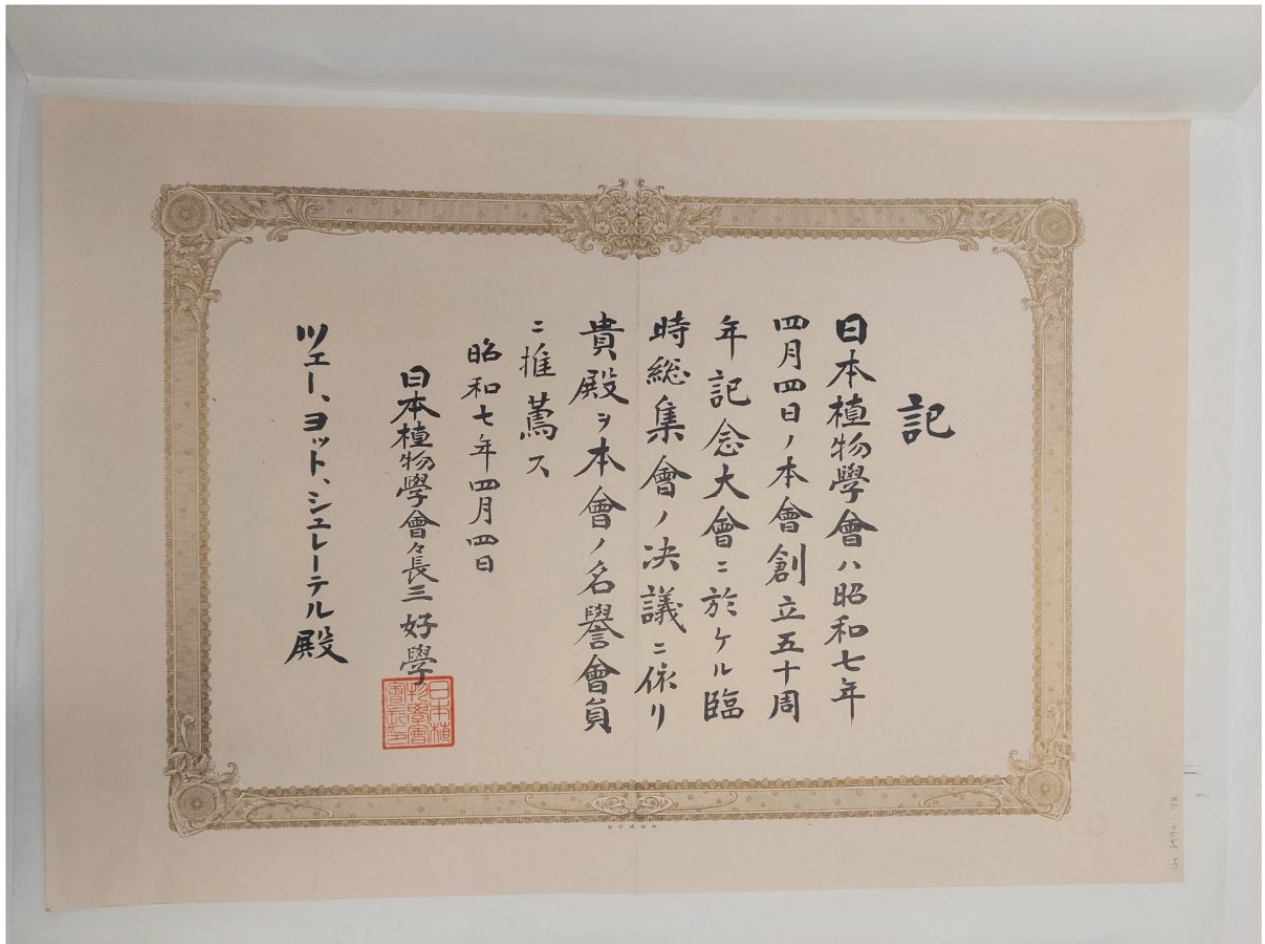 記
日本植物學會ハ昭和七年
四月四日ノ本會創立五十周
年記念大會ニ於ケル臨
時総集會ノ决議ニ依リ
貴殿ヲ本會ノ名譽會員
ニ推薦ス
昭和七年四月四日
日本植物學會々長三好學
日本植
物學會
會長印
ツエー、ヨット、シュレーテル殿